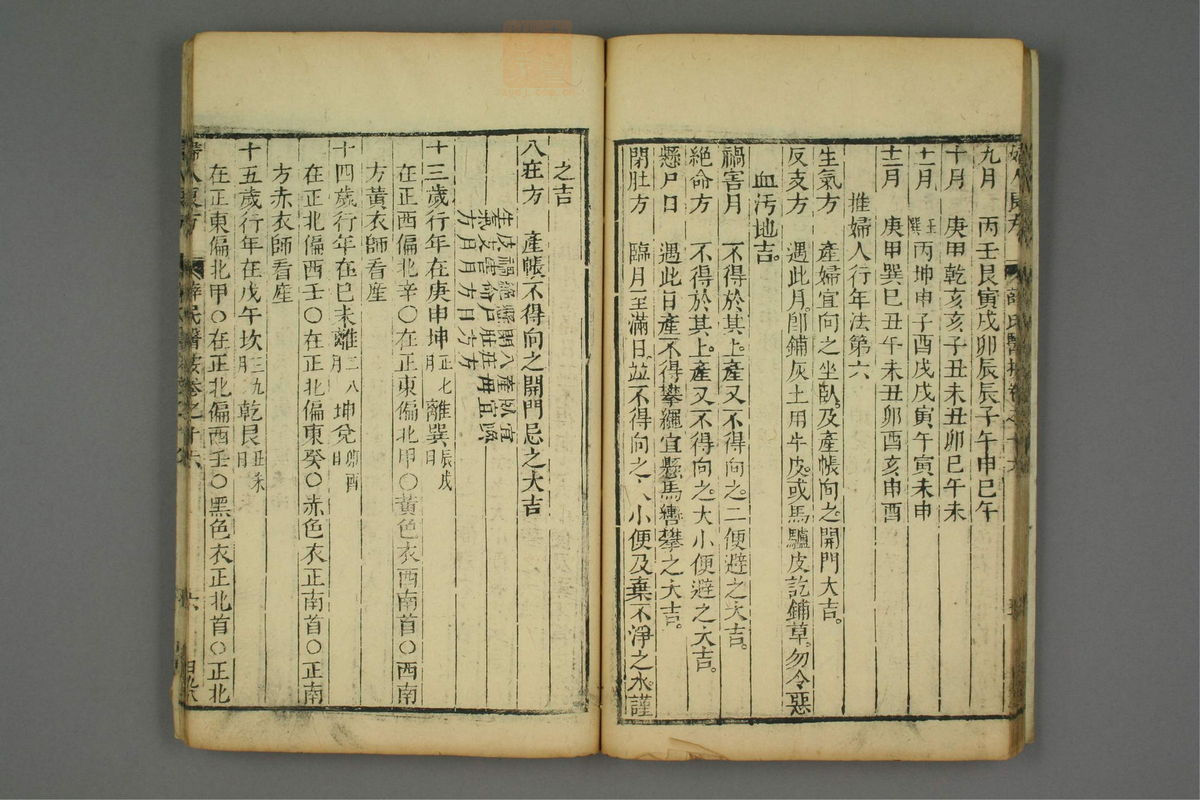 九月　丙壬艮寅戌卯辰辰子午申巳午
十月　庚甲乾亥亥子丑未丑卯巳午未
十一月　丙坤申子酉戌戌寅午寅未申
十二月　庚甲巽巳丑午未丑卯酉亥申酉
推婦人行年法第六
生氣方　產婦宜向之坐臥及產帳向之開門大吉。
反支方　遇此月。卽鋪灰土用牛皮。或馬驢皮訖鋪草。勿令惡
血汚地吉。
禍害月　不得於其上。產又不得向之。二便避之大吉。
絶命方　不得於其上。產又不得向之。大小便避之大吉。
懸尸日　遇此日產不得攀繩宜懸馬轡攀之大吉。
閉肚方　臨月至滿日。並不得向之大小便及棄不淨之水。謹
之吉
八莊方　產帳不得向之開門忌之大吉
生支禍絶懸閉八產臥宜
氣支害命尸肚莊毋宜隂
方月月方日方方
十三歲行年在庚申坤正七月離巽辰戌日
在正西偏北辛〇在正東偏北甲〇黃色衣西南首〇西南
方黃衣師看產
十四歲行年在巳未離二八月坤兌卯酉日
在正北偏西壬〇在正北偏東癸〇赤色衣正南首〇正南
方赤衣師看產
十五歲行年在戊午坎三九月乾艮丑未日
在正東偏北甲〇在正北偏西壬〇黑色衣正北首〇正北